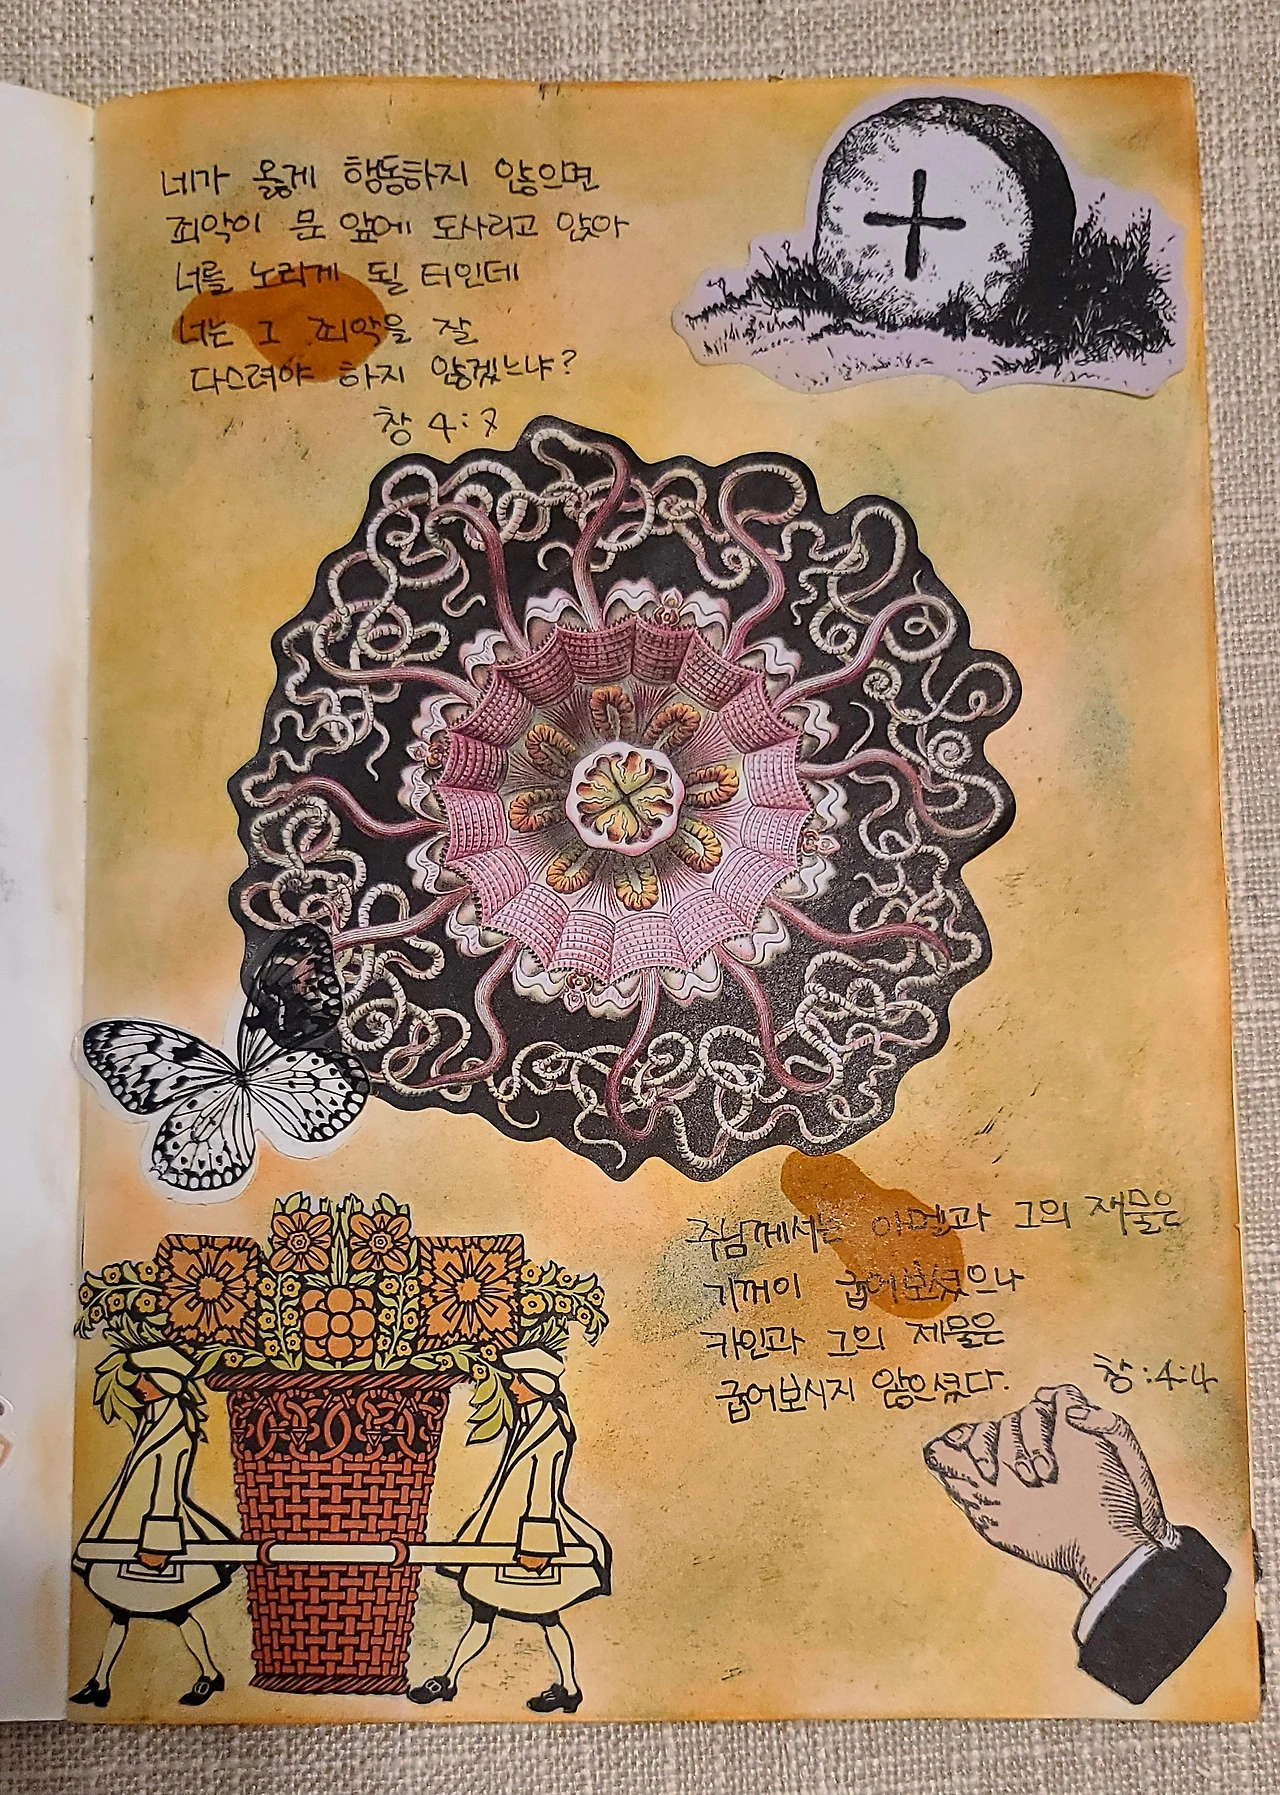 네가 옳게 행동하지 않으면
죄악이 문 앞에 도사리고 앉아
너를 노리게 될 터인데
너는 그 죄악을 잘
다스려야 하지 않겠느냐?
창 4:7
주님께서는 아벨과 그의 제물은
기꺼이 굽어보셨으나
카인과 그의 제물은
굽어보시지 않으셨다.
창:4:4